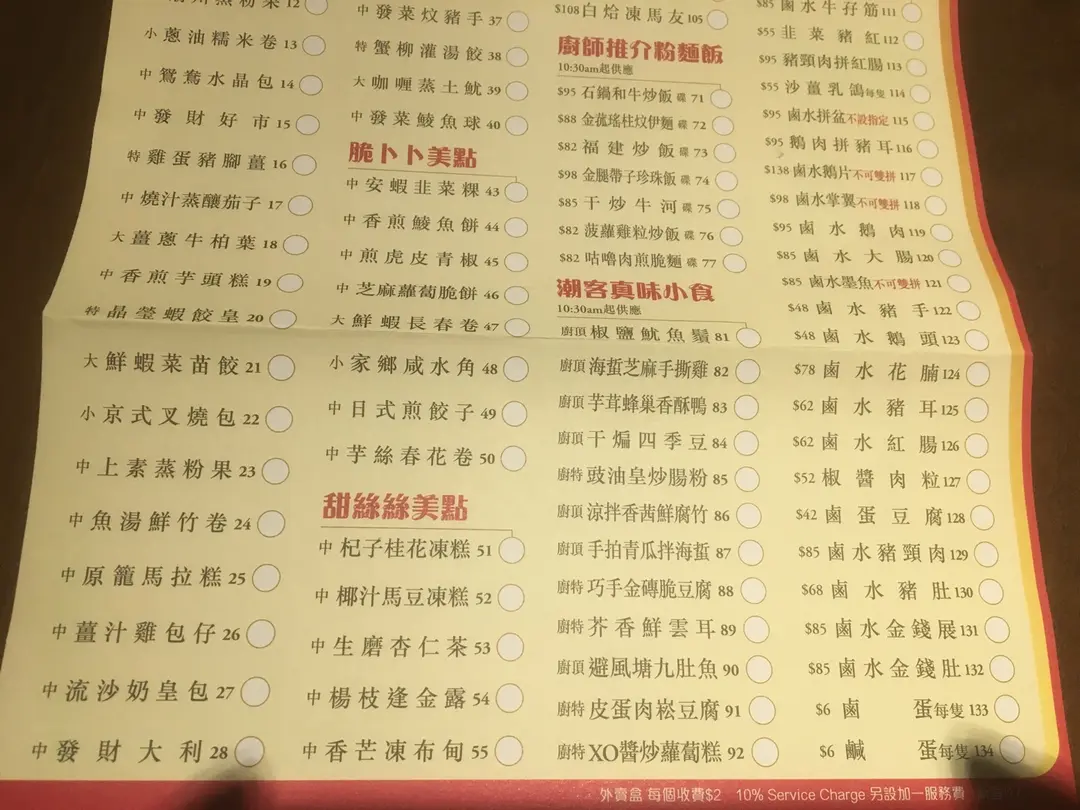 12
小 蔥油糯米卷 13
中 鴛鴦水晶包 14
中 發財好市 15
特 雞蛋豬腳薑 16
中 燒汁蒸釀茄子 17
大 薑蔥牛柏葉 18
中 香煎芋頭糕 19
特 晶瑩蝦餃皇 20
大 鮮蝦菜苗餃 21
小 京式叉燒包 22
中 上素蒸粉果 23
中 魚湯鮮竹卷 24
中 原籠馬拉糕 25
中 薑汁雞包仔 26
中 流沙奶皇包 27
中 發財大利 28
中 發菜炆豬手 37
特 蟹柳灌湯餃 38
大 咖喱蒸土魷 39
中 發菜鯪魚球 40
脆卜卜美點
中 安蝦韭菜粿 43
中 香煎鯪魚餅 44
中 煎虎皮青椒 45
中 芝麻蘿蔔脆餅 46
大 鮮蝦長春卷 47
小 家鄉咸水角 48
中 日式煎餃子 49
中 芋絲春花卷 50
甜絲絲美點
中 杞子桂花凍糕 51
中 椰汁馬豆凍糕 52
中 生磨杏仁茶 53
中 楊枝逢金露 54
中 香芒凍布甸 55
$108 白烚凍馬友 105
廚師推介粉麵飯
10:30am起供應
$95 石鍋和牛炒飯 碟 71
$88 金菰瑤柱炆伊麵 碟 72
$82 福建炒飯 碟 73
$98 金腿帶子珍珠飯 碟 74
$85 干炒牛河 碟 75
$82 菠蘿雞粒炒飯 碟 76
$82 咕嚕肉煎脆麵 碟 77
潮客真味小食
10:30am起供應
廚頂 椒鹽魷魚鬚 81
廚頂 海蜇芝麻手撕雞 82
廚頂 芋茸蜂巢香酥鴨 83
廚頂 干煸四季豆 84
廚特 豉油皇炒腸粉 85
廚頂 涼拌香茜鮮腐竹 86
廚頂 手拍青瓜拌海蜇 87
廚特 巧手金磚脆豆腐 88
廚特 芥香鮮雲耳 89
廚頂 避風塘九肚魚 90
廚特 皮蛋肉崧豆腐 91
廚特 XO醬炒蘿蔔糕 92
$85 鹵水牛孖筋 111
$55 韭菜豬紅 112
$95 豬頸肉拼紅腸 113
$55 沙薑乳鴿 每隻 114
$95 鹵水拼盆 不設指定 115
$95 鵝肉拼豬耳 116
$138 鹵水鵝片 不可雙拼 117
$98 鹵水掌翼 不可雙拼 118
$95 鹵水鵝肉 119
$85 鹵水大腸 120
$85 鹵水墨魚 不可雙拼 121
$48 鹵水豬手 122
$48 鹵水鵝頭 123
$78 鹵水花腩 124
$62 鹵水豬耳 125
$62 鹵水紅腸 126
$52 椒醬肉粒 127
$42 鹵蛋豆腐 128
$85 鹵水豬頸肉 129
$68 鹵水豬肚 130
$85 鹵水金錢展 131
$85 鹵水金錢肚 132
$6 鹵蛋 每隻 133
$6 鹹蛋 每隻 134
外賣盒 每個收費$2 10% Service Charge 另設加一服務費